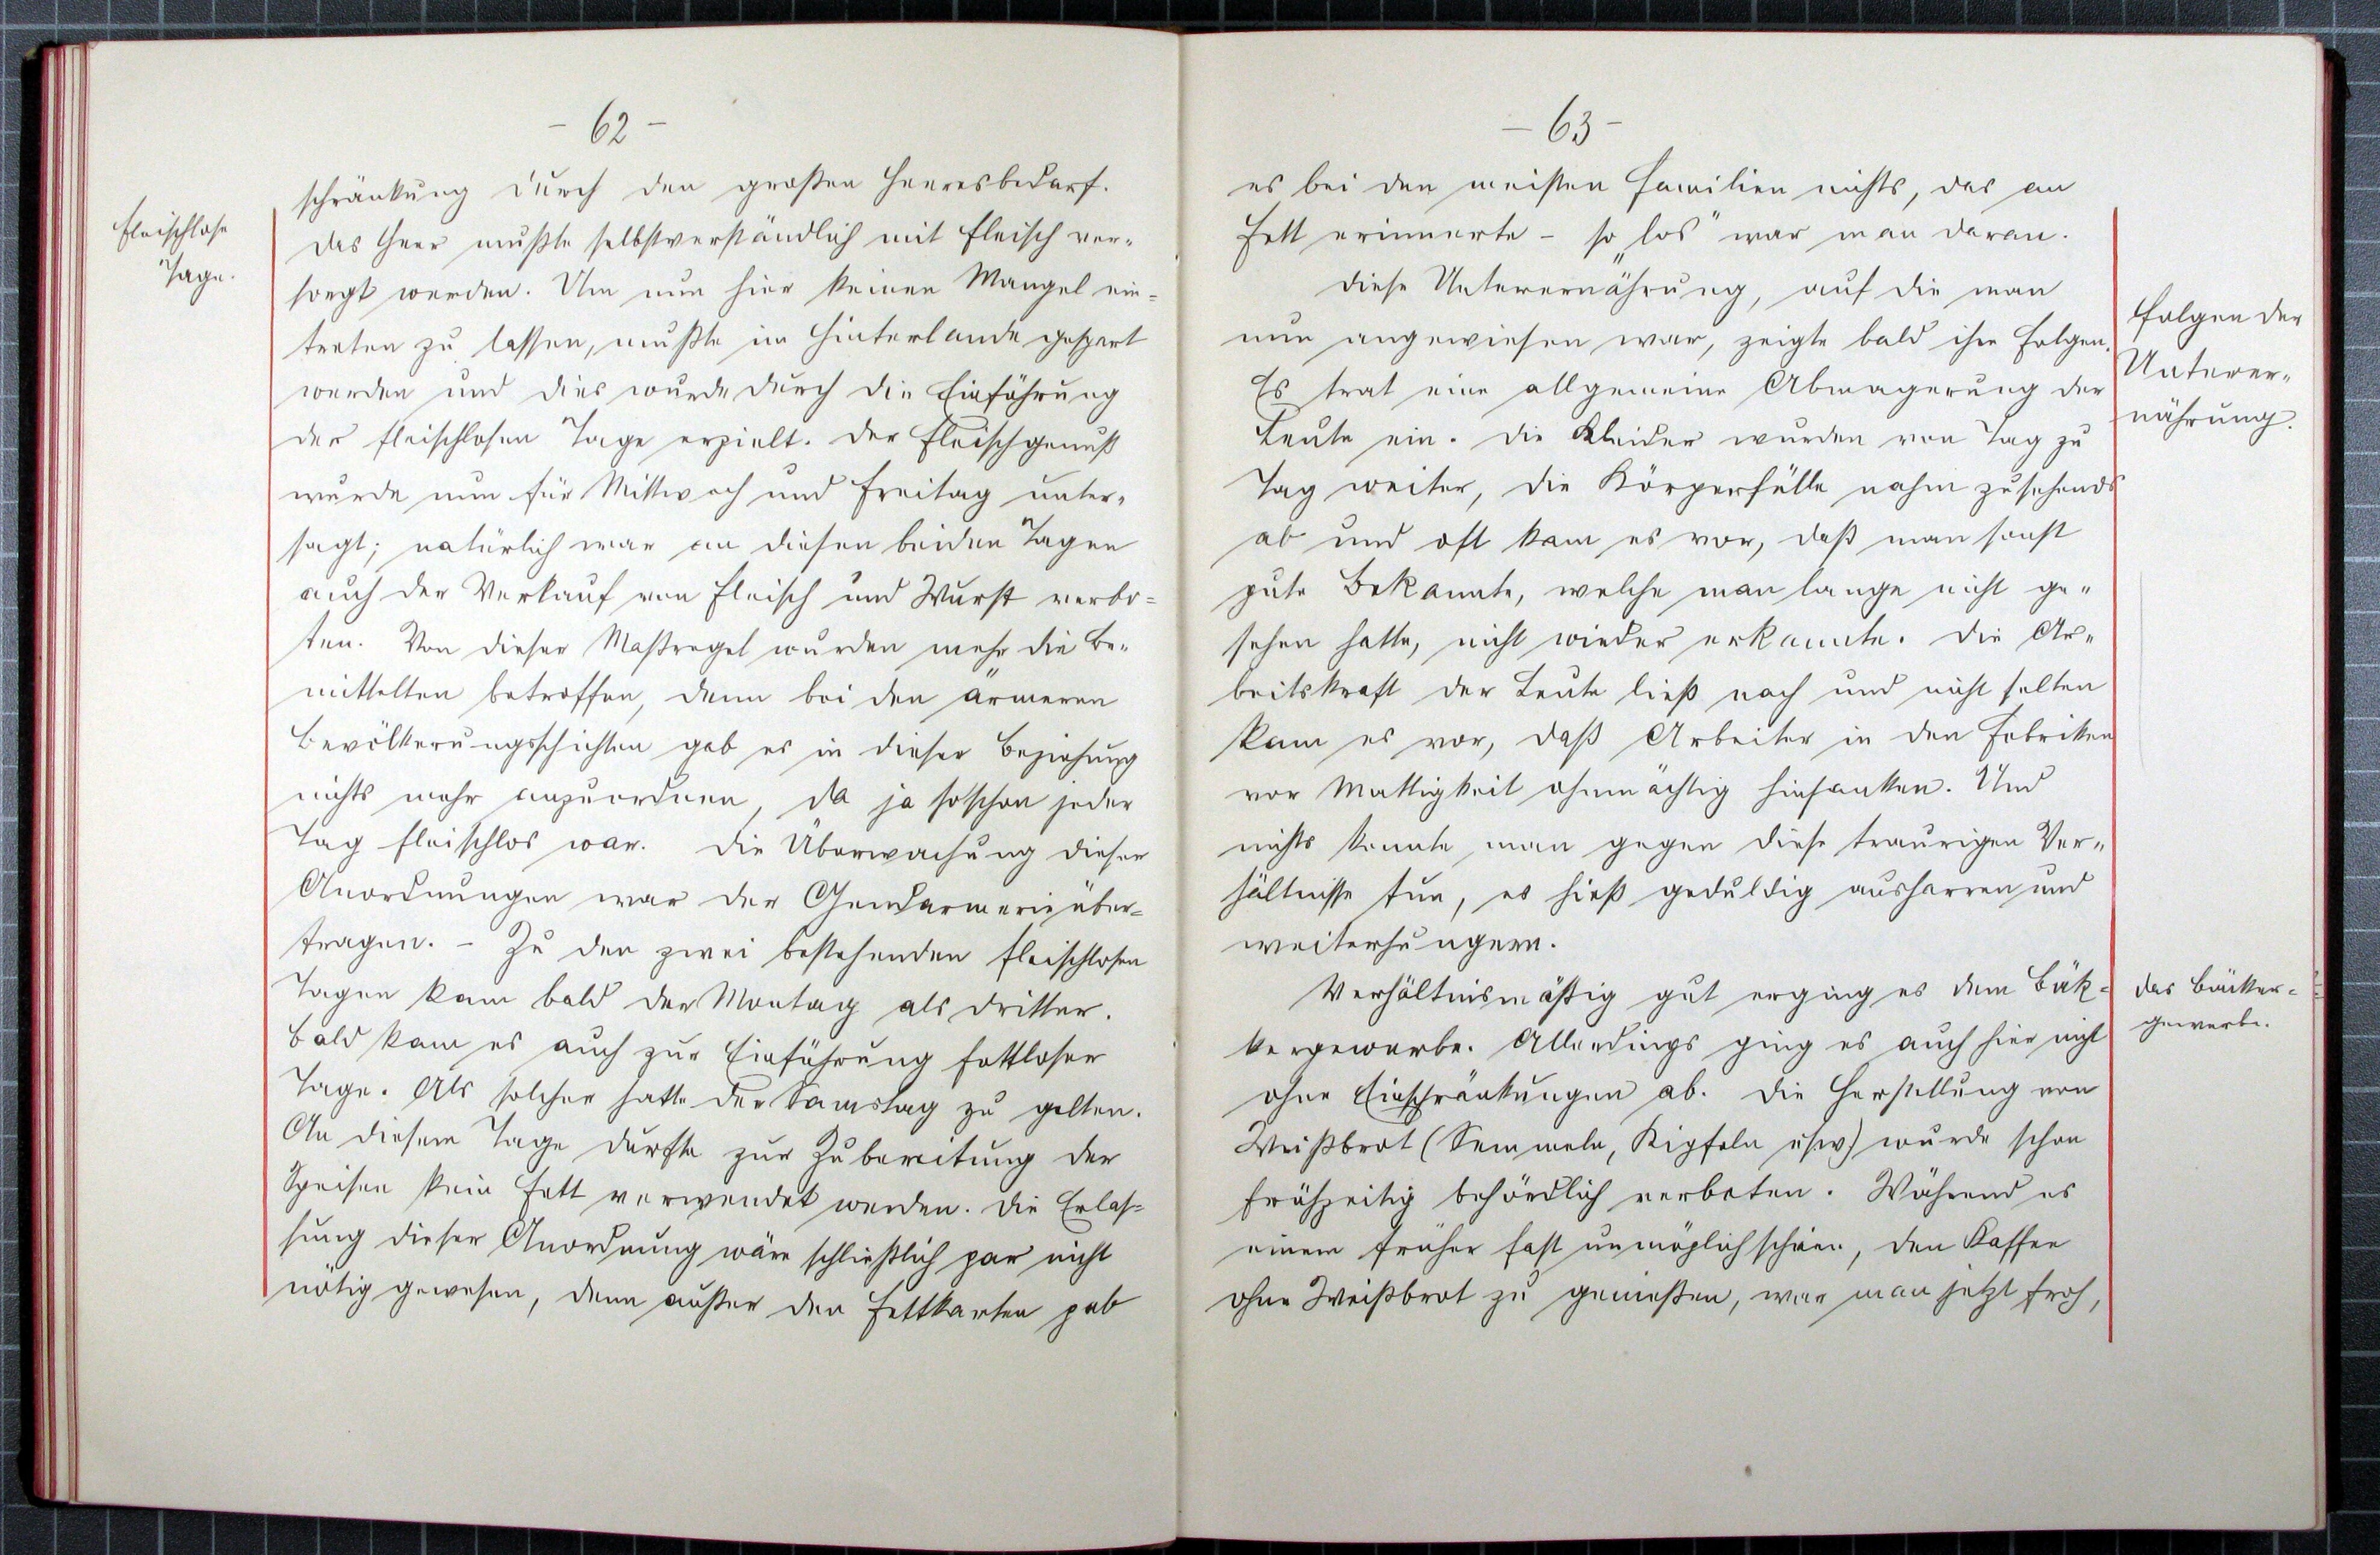 - 62 -
Fleischlose
Tage.
schränkung durch den großen Heeresbedarf.
Das Heer mußte selbstverständlich mit Fleisch ver-
sorgt werden. Um nun hier keinen Mangel ein-
treten zu lassen, mußte im Hinterlande gespart
werden und dies wurde durch die Einführung
der fleischlosen Tage erzielt. Der Fleischgenuß
wurde nun für Mittwoch und Freitag unter-
sagt; natürlich war an diesen beiden Tagen
auch der Verkauf von Fleisch und Wurst verbo-
ten. Von dieser Maßregel wurden mehr die Be-
mittelten betroffen, denn bei den ärmeren
Bevölkerungsschichten gab es in dieser Beziehung
nichts mehr anzuordnen, da ja soschon jeder
Tag fleischlos war. Die Überwachung dieser
Anordnungen war der Gendarmerie über-
tragen. - Zu den zwei bestehenden fleischlosen
Tagen kam bald der Montag als dritter.
Bald kam es auch zur Einführung fettloser
Tage. Als solcher hatte der Samstag zu gelten.
An diesem Tage durfte zur Zubereitung der
Speisen kein Fett verwendet werden. Die Erlas-
sung dieser Anordnung wäre schließlich gar nicht
nötig gewesen, denn außer den Fettkarten gab
- 63 -
es bei den meisten Familien nichts, das an
Fett erinnerte - so „los" war man daran.
Diese Unterernährung, auf die man
nun angewiesen war, zeigte bald ihre Folgen.
Es trat eine allgemeine Abmagerung der
Leute ein. Die Kleider wurden von Tag zu
Tag weiter, die Körperfülle nahm zusehends
ab und oft kam es vor, daß man sonst
gute Bekannte, welche man lange nicht ge-
sehen hatte, nicht wieder erkannte. Die Ar-
beitskraft der Leute ließ nach und nicht selten
kam es vor, daß Arbeiter in den Fabriken
vor Mattigkeit ohnmächtig hinsanken. Und
nichts konnte man gegen diese traurigen Ver-
hältnisse tun, es hieß geduldig ausharren und
weiterhungern.
Verhältnismäßig gut erging es dem Bäk-
kergewerbe. Allerdings ging es auch hier nicht
ohne Einschränkungen ab. Die Herstellung von
Weißbrot (Semmeln, Kipfeln usw) wurde schon
frühzeitig behördlich verboten. Während es
einem früher fast unmöglich schien, den Kaffee
ohne Weißbrot zu genießen, war man jetzt froh,
Folgen der
Unterer-
nährung.
Das Bäcker-
gewerbe.